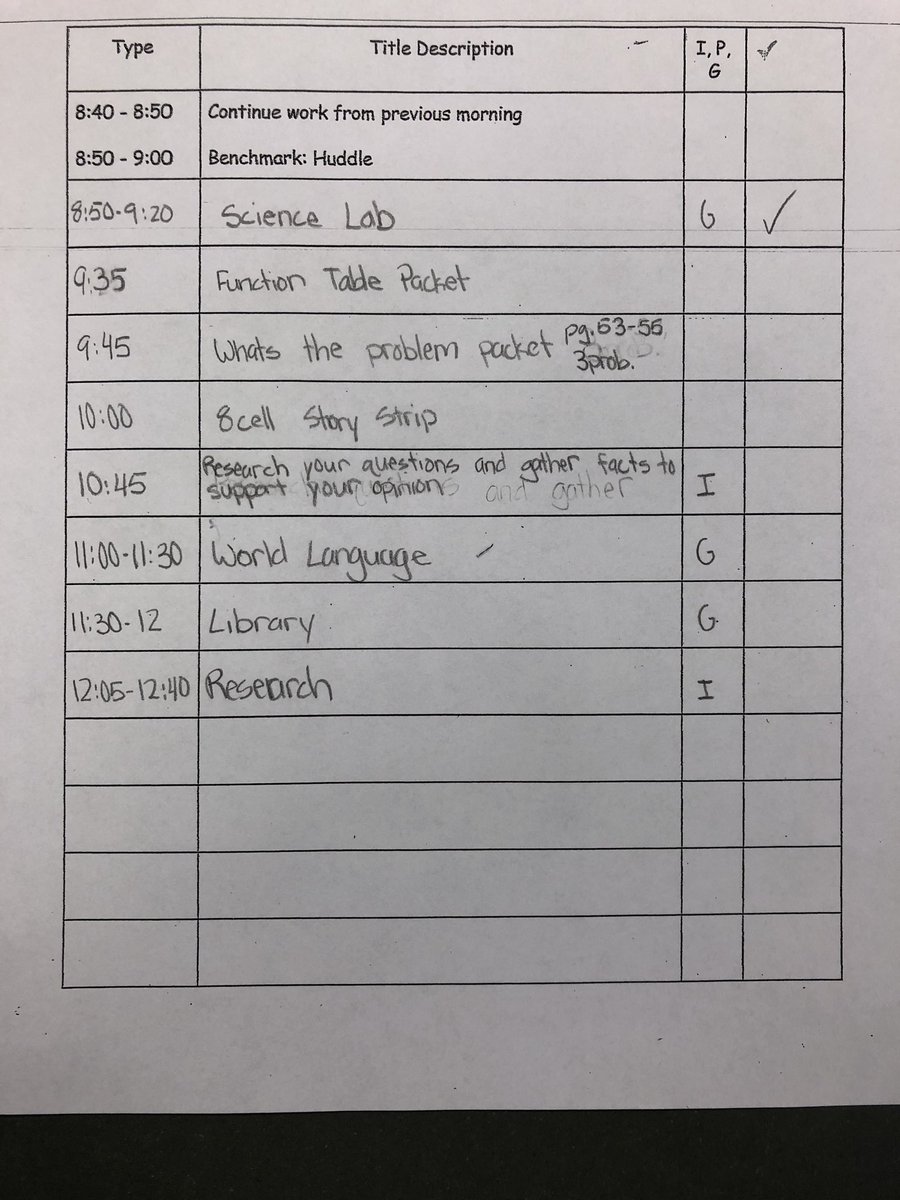 Type Title Description I, P, G ✓
8:40 - 8:50 Continue work from previous morning
8:50 - 9:00 Benchmark: Huddle
8:50-9:20 Science Lab G ✓
9:35 Function Table Packet
9:45 Whats the problem packet pg. 53-56 3prob.
10:00 8cell Story Strip
10:45 Research your questions and gather facts to
support your opinion and gather I
11:00-11:30 World Language G
11:30-12 Library G
12:05-12:40 Research I